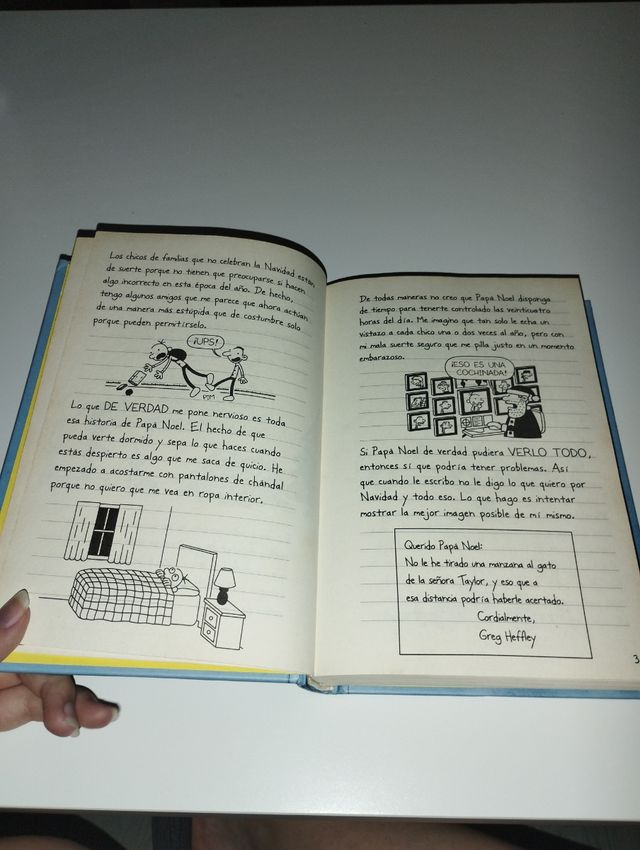 Los chicos de familias que no celebran la Navidad están
de suerte porque no tienen que preocuparse si hacen
algo incorrecto en esta época del año. De hecho,
tengo algunos amigos que me parece que ahora actúan
de una manera más estúpida que de costumbre solo
porque pueden permitírselo.
¡UPS!
PIM
Lo que DE VERDAD me pone nervioso es toda
esa historia de Papá Noel. El hecho de que
pueda verte dormido y sepa lo que haces cuando
estás despierto es algo que me saca de quicio. He
empezado a acostarme con pantalones de chándal
porque no quiero que me vea en ropa interior.
De todas maneras no creo que Papá Noel disponga
de tiempo para tenerte controlado las veinticuatro
horas del día. Me imagino que tan solo le echa un
vistazo a cada chico una o dos veces al año, pero con
mi mala suerte seguro que me pilla justo en un momento
embarazoso.
¡ESO ES UNA
COCHINADA!
Si Papá Noel de verdad pudiera VERLO TODO,
entonces sí que podría tener problemas. Así
que cuando le escribo no le digo lo que quiero por
Navidad y todo eso. Lo que hago es intentar
mostrar la mejor imagen posible de mí mismo.
Querido Papá Noel:
No le he tirado una manzana al gato
de la señora Taylor, y eso que a
esa distancia podría haberle acertado.
Cordialmente,
Greg Heffley
3